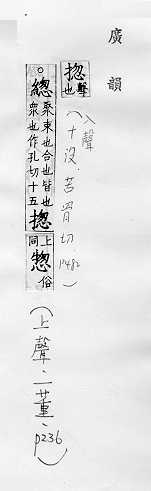 廣韻
揔 也
(入聲·十沒·苦骨切·p482)
○緫 聚束也合也皆也衆也作孔切十五 揔 上同 惣 俗
(上聲·一董·p236)